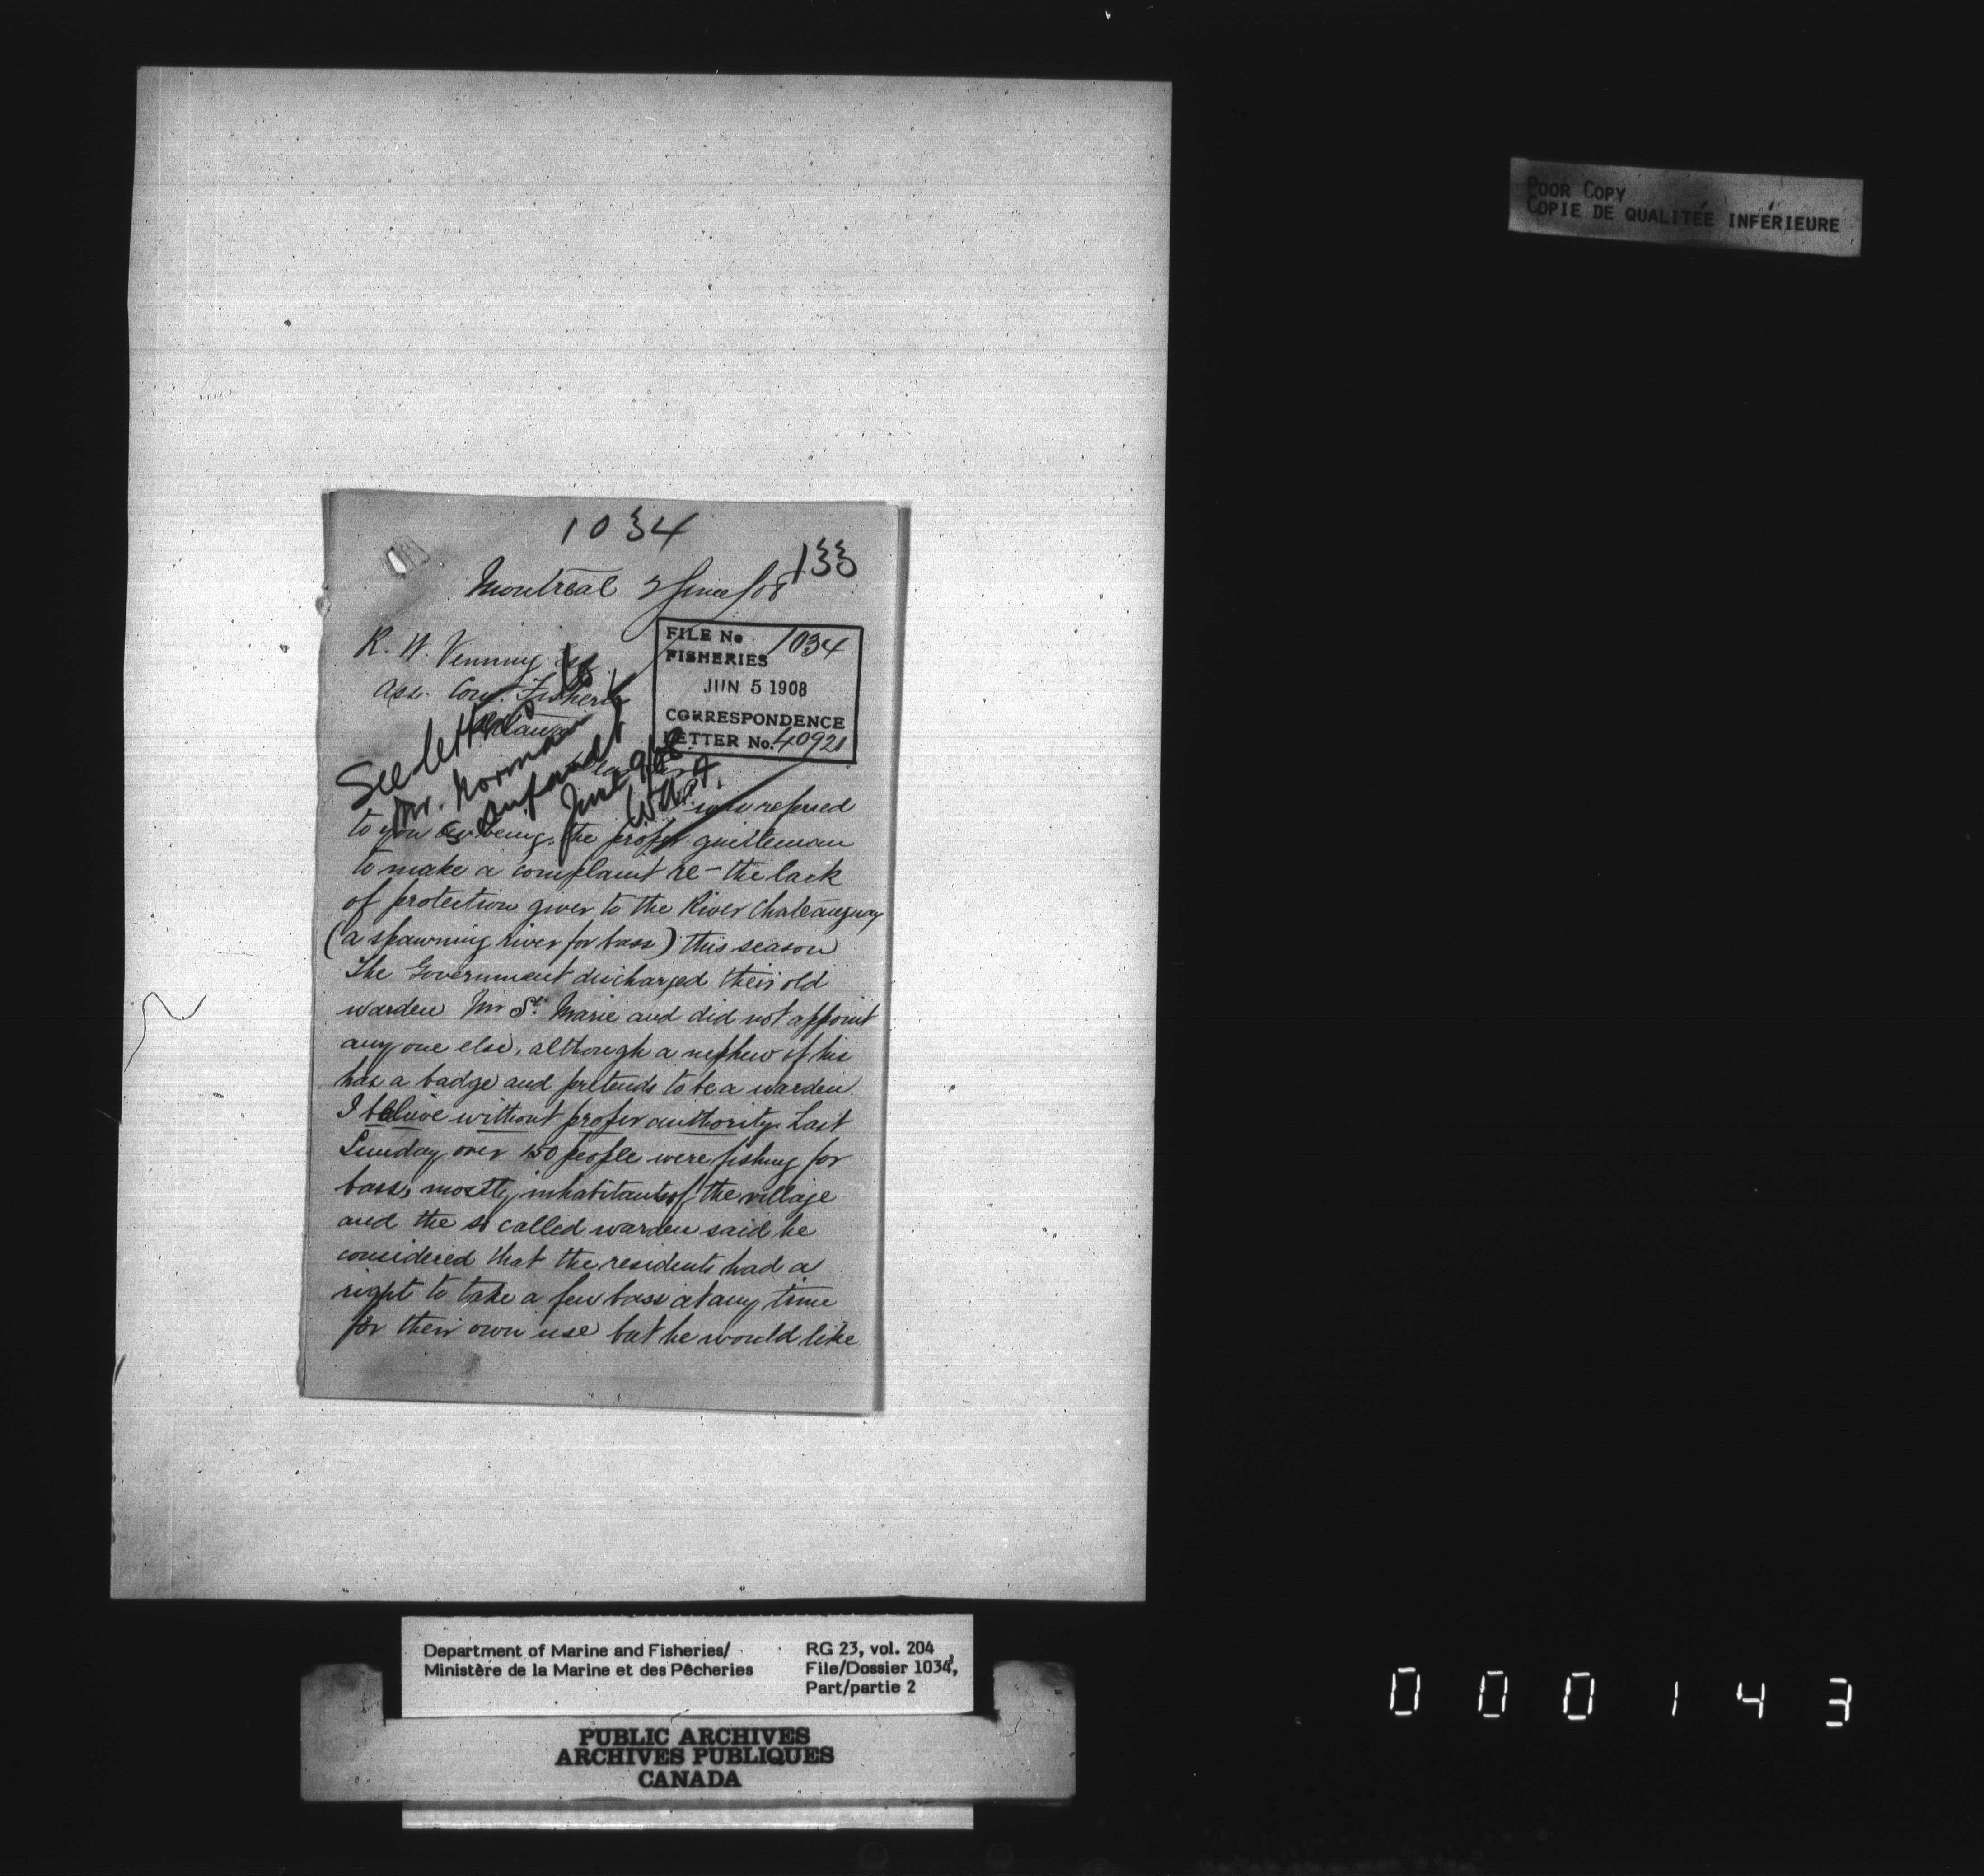 1034
133
Montreal 2 June/08
FILE No 1034
FISHERIES
JUN 5 1908
CORRESPONDENCE
LETTER No. 40921
R. W. Venning Esq
Ass. Com. Fisheries
See letter to
Mr. Norman
June 9/08
was referred
to you as being the proper gentleman
to make a complaint re - the lack
of protection given to the River Chateauguay
(a spawning river for bass) this season
The Government discharged their old
warden Mr St. Marie and did not appoint
any one else, although a nephew of his
has a badge and pretends to be a warden
I beleive without proper authority. Last
Sunday over 150 people were fishing for
bass, mostly inhabitants of the village
and the so called warden said he
considered that the residents had a
right to take a few bass at any time
for their own use but he would like
POOR COPY
COPIE DE QUALITÉE INFÉRIEURE
Department of Marine and Fisheries/
Ministère de la Marine et des Pêcheries
RG 23, vol. 204,
File/Dossier 1034,
Part/partie 2
PUBLIC ARCHIVES
ARCHIVES PUBLIQUES
CANADA
000143